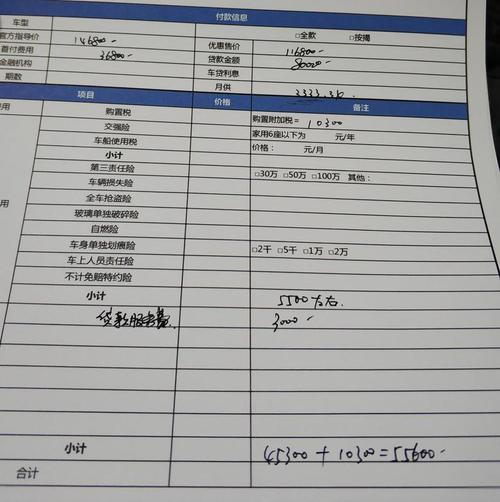 付款信息
车型 □全款 □按揭
官方指导价 146800- 优惠售价 116800-
首付费用 36800- 贷款金额 80000-
金融机构 车贷利息
期数 月供 3333.3
项目 价格 备注
购置税 购置附加税= 10300
交强险 家用6座以下为 元/年
车船使用税 价格: 元/月
小计
第三责任险 □30万 □50万 □100万 其他:
车辆损失险
全车抢盗险
用
玻璃单独破碎险
自燃险
车身单独划痕险 □2千 □5千 □1万 □2万
车上人员责任险
不计免赔特约险
小计 5500左右.
贷款服务费 3000-
小计 45300+10300=55600-
合计